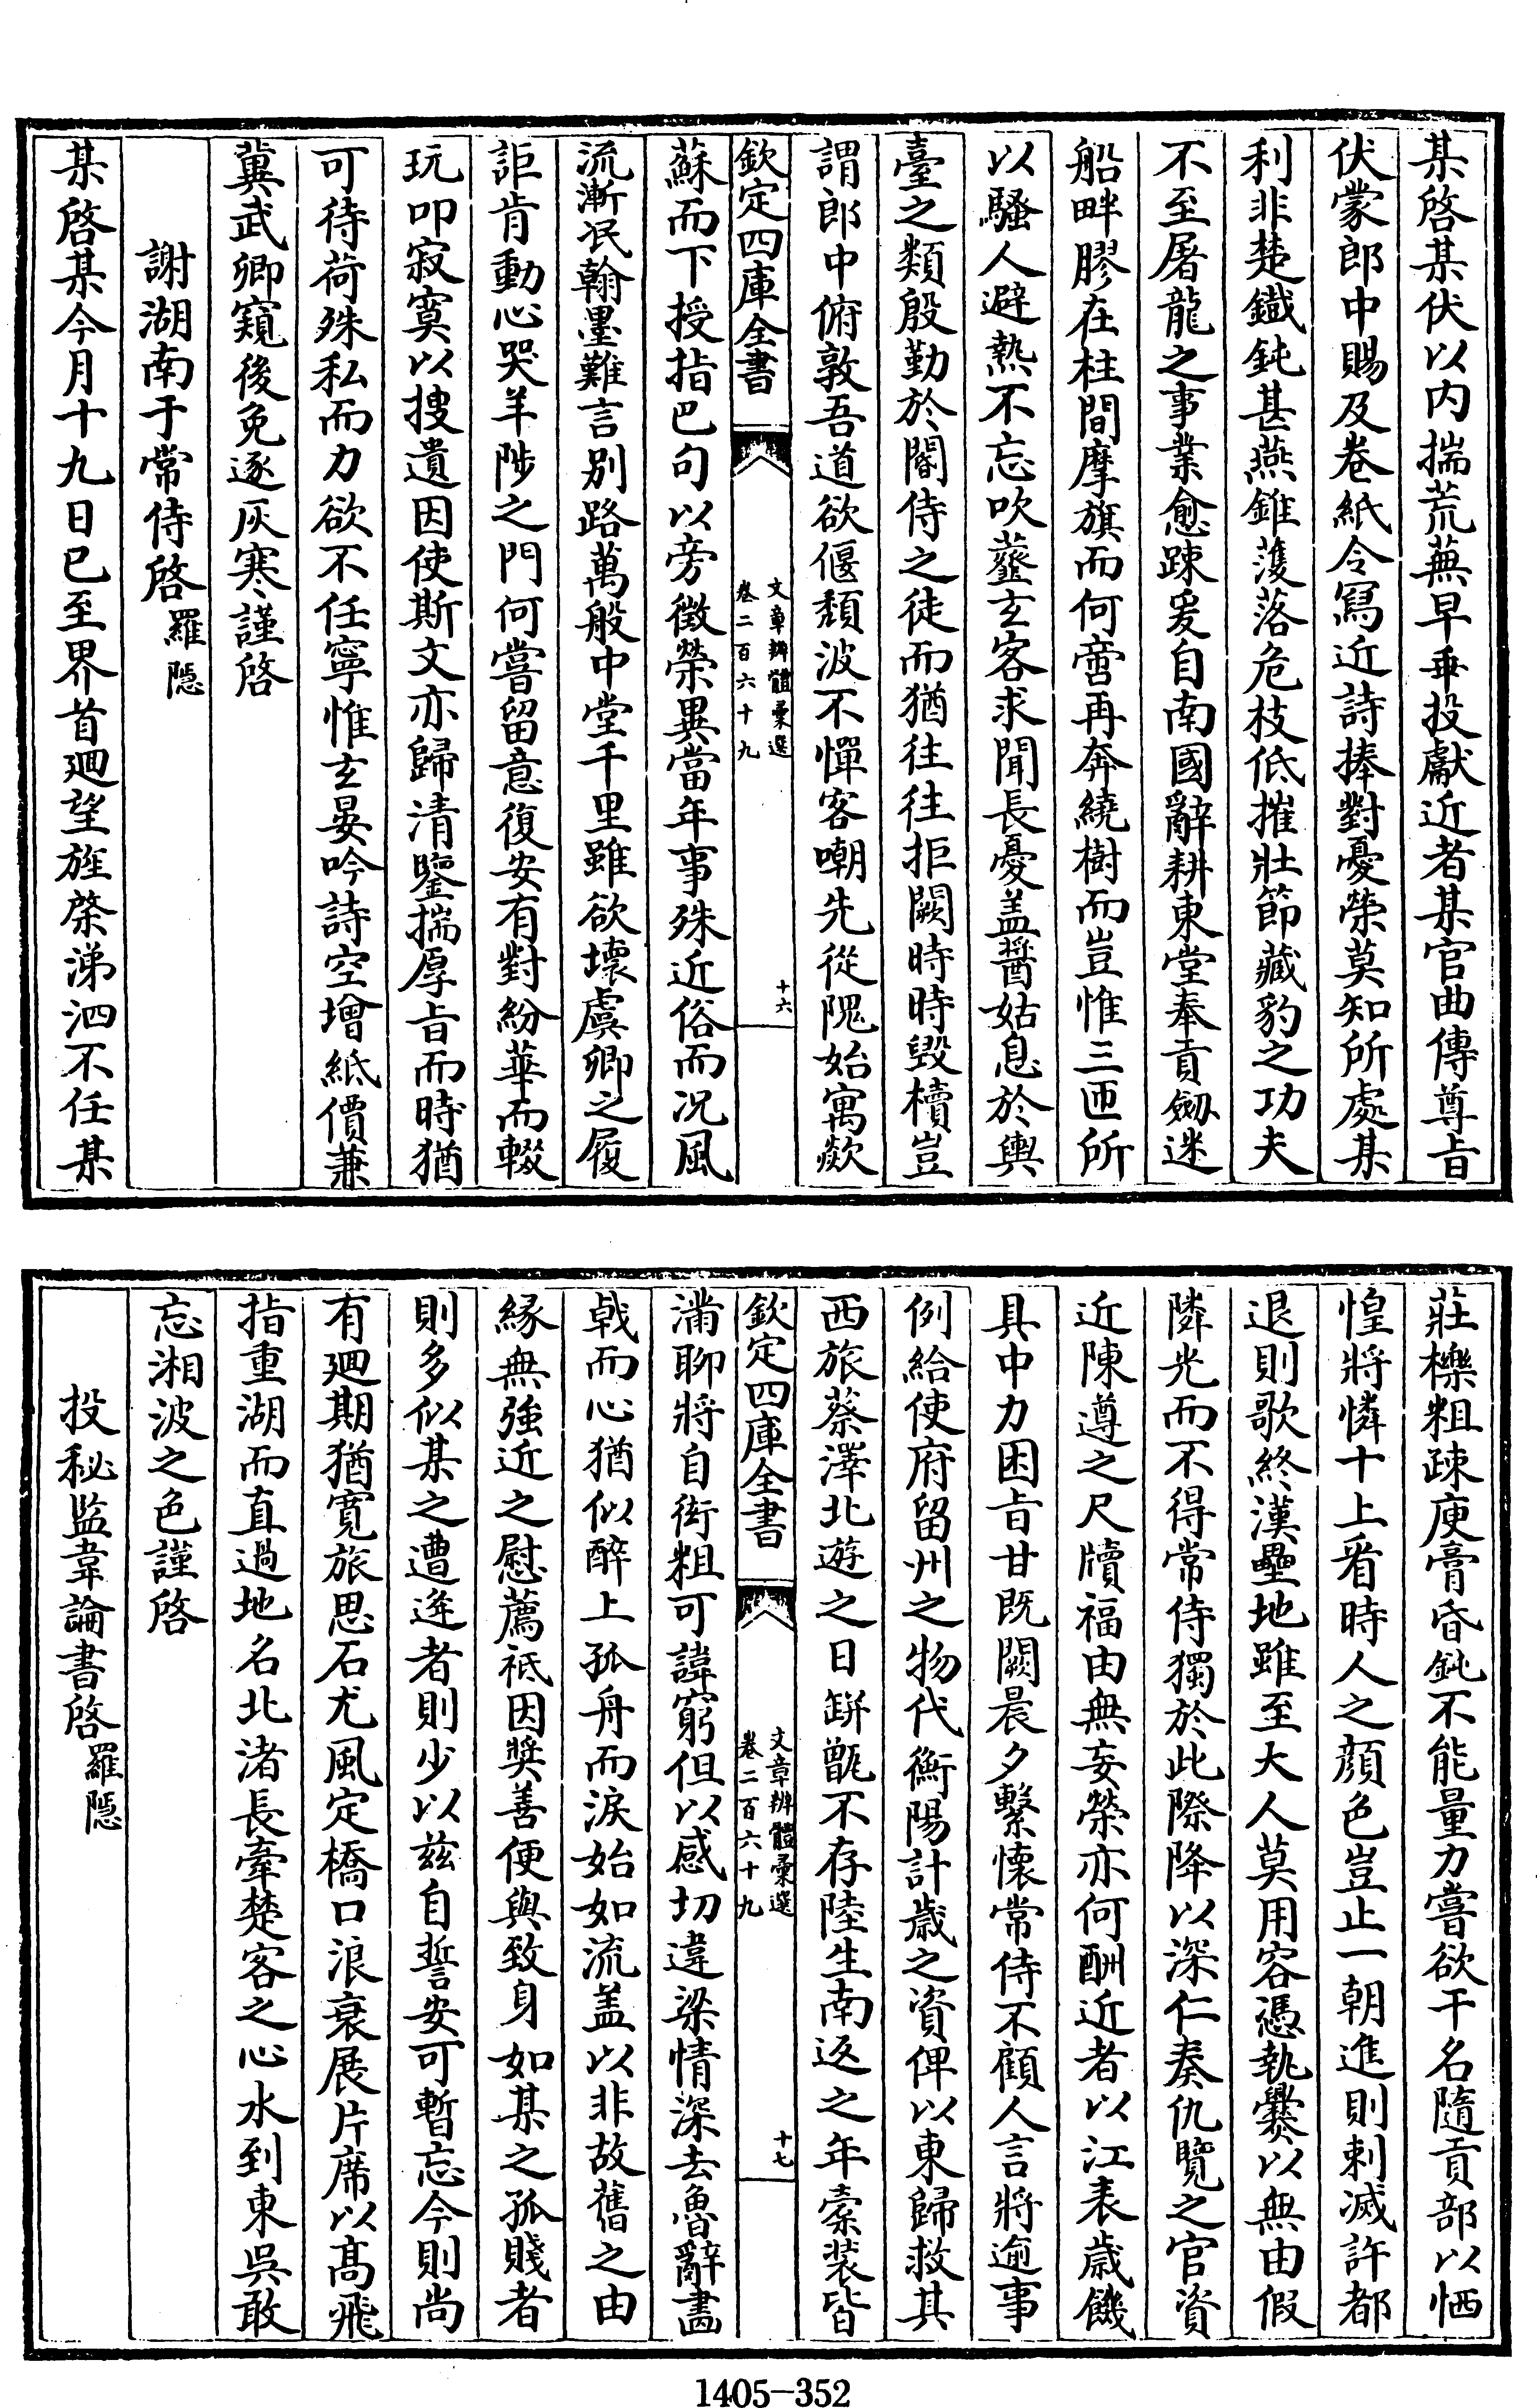 某啓某伏以内揣荒蕪早垂投獻近者某官曲傳尊㫖
伏蒙郎中賜及卷紙令寫近詩捧對憂榮莫知所處某
利非楚鐡鈍甚燕錐濩落危枝低摧壯節藏豹之功夫
不至屠龍之事業愈踈爰自南國辭耕東堂奉貢劒迷
船畔膠在柱間摩旗而何啻再奔繞樹而豈惟三匝所
以騷人避熱不忘吹虀玄客求聞長憂盖醬姑息於輿
臺之類殷勤於閽侍之徒而猶往往拒闕時時毁櫝豈
謂郎中俯敦吾道欲偃頽波不憚客嘲先從隗始寓歘
欽定四庫全書
文章辨體彙選
卷二百六十九
十六
蘇而下授指巴句以旁徵榮異當年事殊近俗而况風
流漸泯翰墨難言别路萬般中堂千里雖欲壊虞卿之履
詎肯動心哭羊陟之門何嘗留意復安有對紛華而輟
玩叩寂寞以搜遺因使斯文亦歸清鑒揣厚㫖而時猶
可待荷殊私而力欲不任寧惟玄晏吟詩空增紙價兼
冀武卿窺後免逐灰寒謹啓
謝湖南于常侍啓 羅隱
某啓某今月十九日已至界首廻望旌棨涕泗不任某
莊櫟粗疎庾膏昏鈍不能量力嘗欲干名隨貢部以恓
惶將憐十上看時人之顔色豈止一朝進則刺滅許都
退則歌終漢壘地雖至大人莫用容憑執爨以無由假
隣光而不得常侍獨於此際降以深仁奏仇覽之官資
近陳遵之尺牘福由無妄榮亦何酬近者以江表歳饑
具中力困㫖甘既闕晨夕繫懷常侍不顧人言將逾事
例給使府留州之物代衡陽計歳之資俾以東歸救其
西旅蔡澤北遊之日缾甑不存陸生南返之年槖装皆
欽定四庫全書
文章辨體彙選
卷二百六十九
十七
滿聊將自衒粗可諱窮但以感切違梁情深去魯辭畫
戟而心猶似醉上孤舟而淚始如流盖以非故舊之由
縁無強近之慰薦祗因奬善便與致身如某之孤賤者
則多似某之遭逄者則少以兹自誓安可暫忘今則尚
有廻期猶寛旅思石尤風定橋口浪衰展片席以髙飛
指重湖而直過地名北渚長牽楚客之心水到東吳敢
忘湘波之色謹啓
投秘監韋論書啓 羅隱
1405-352